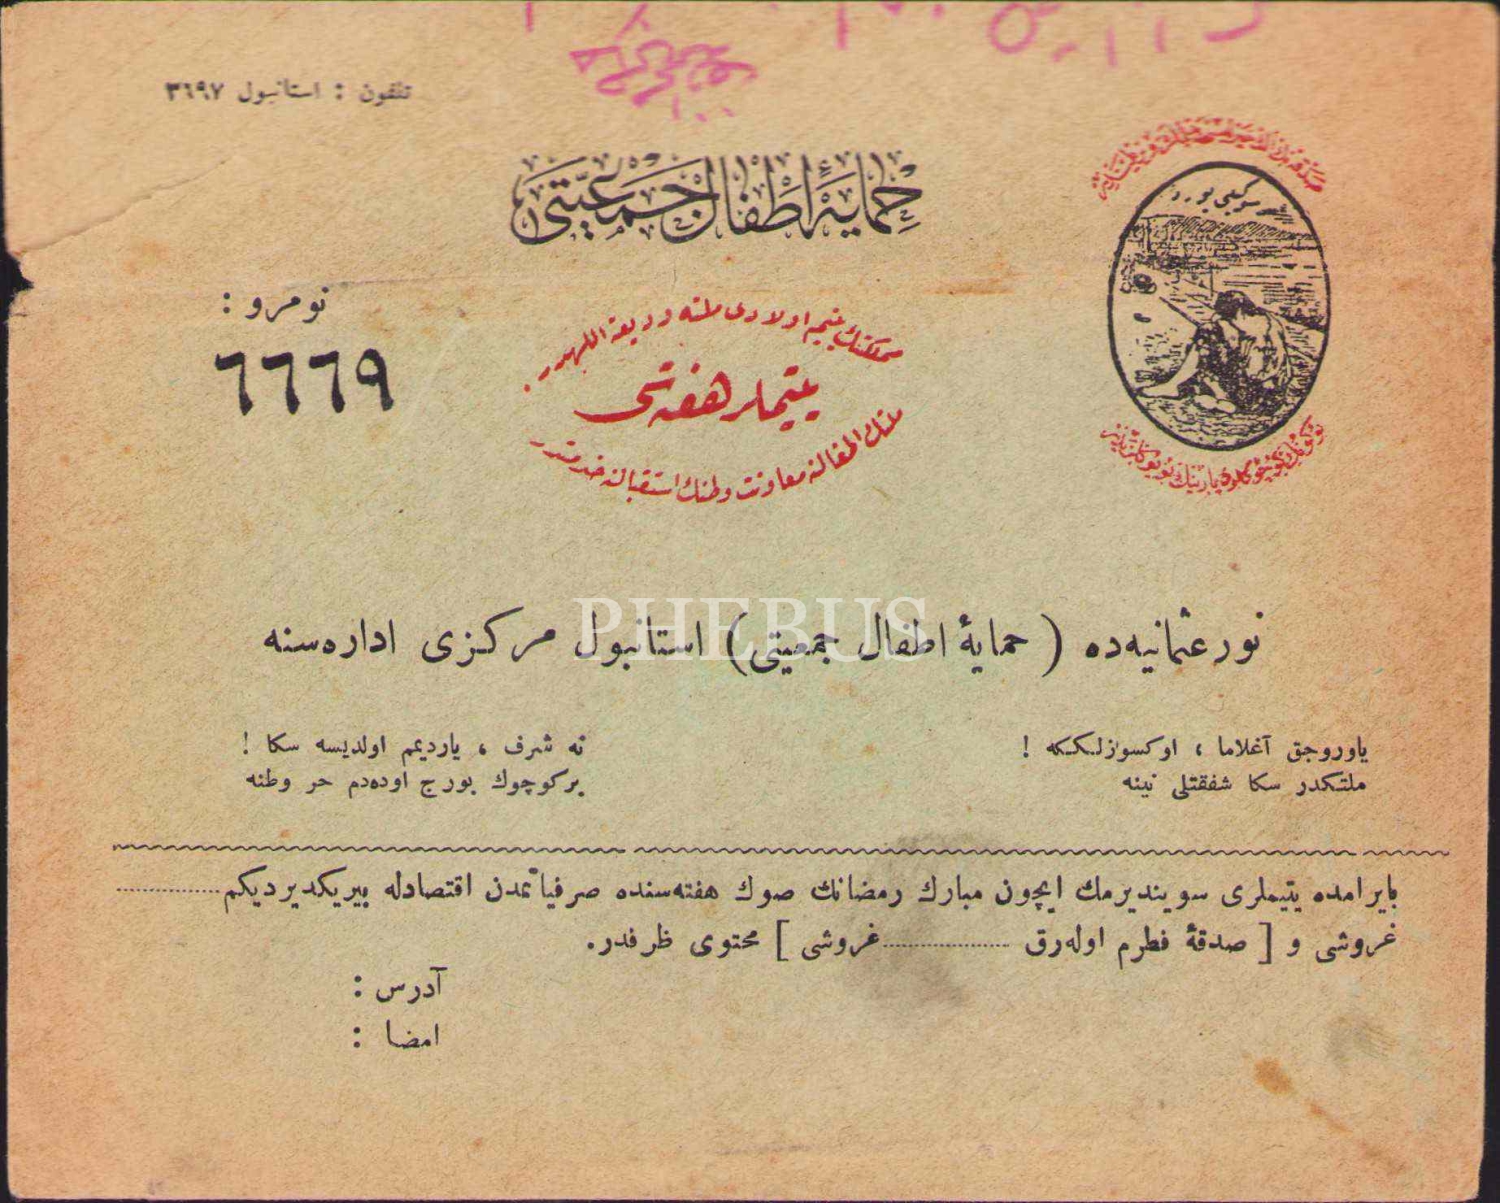 تلفون : استانبول ٣٦٩٧
حمايۀ اطفال جمعيتى
نومرو :
٦٦٦٩
مملكتك يتيم اولادى ملته وديعۀ الهيه در.
يتيملر هفته سى
ملتك اطفالنه معاونت وطنك استقبالنه خدمتدر
PHEBUS
نور عثمانيه‌ده ( حمايۀ اطفال جمعيتى ) استانبول مركزى اداره‌سنه
ياوروجق آغلاما ، اوكسوزلككه !
ملتكدر سكا شفقتلى نينه
نه شرف ، يارديمم اولديسه سكا !
بر كوچوك بورج اوده‌دم حر وطنه
بايرامده يتيملرى سوينديرمك ايچون مبارك رمضانك صوك هفته‌سنده صرفياتمدن اقتصادله بيريكديرديكم
غروشى و [ صدقۀ فطرم اوله‌رق غروشى ] محتوى ظرفدر.
آدرس :
امضا :